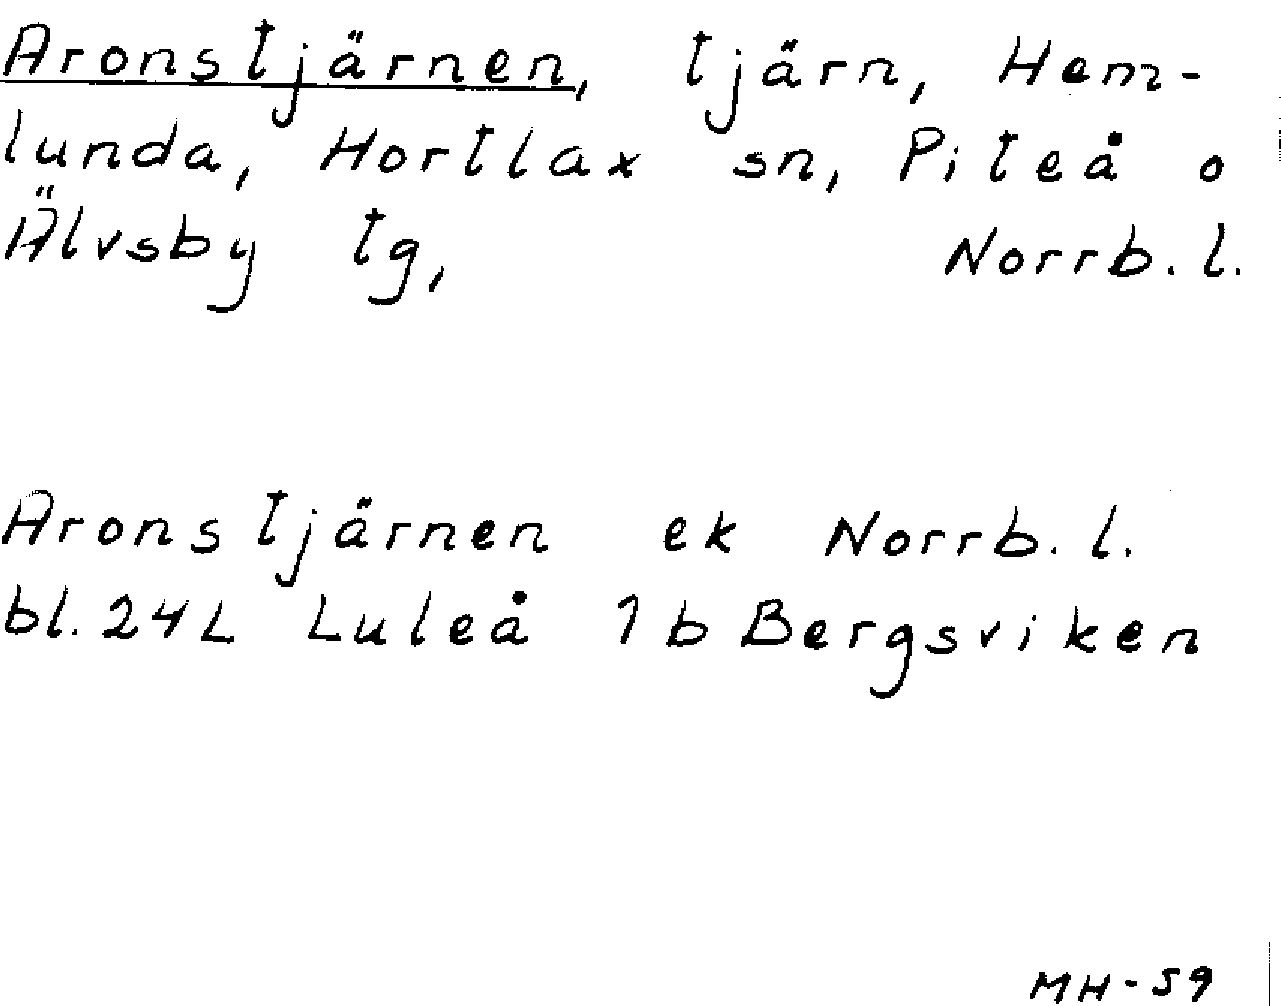 Aronstjärnen, tjärn, Hem-
lunda, Hortlax sn, Piteå o
Älvsby tg, Norrb. l.
Aronstjärnen ek Norrb. l.
bl. 24L Luleå 1b Bergsviken
MH-59